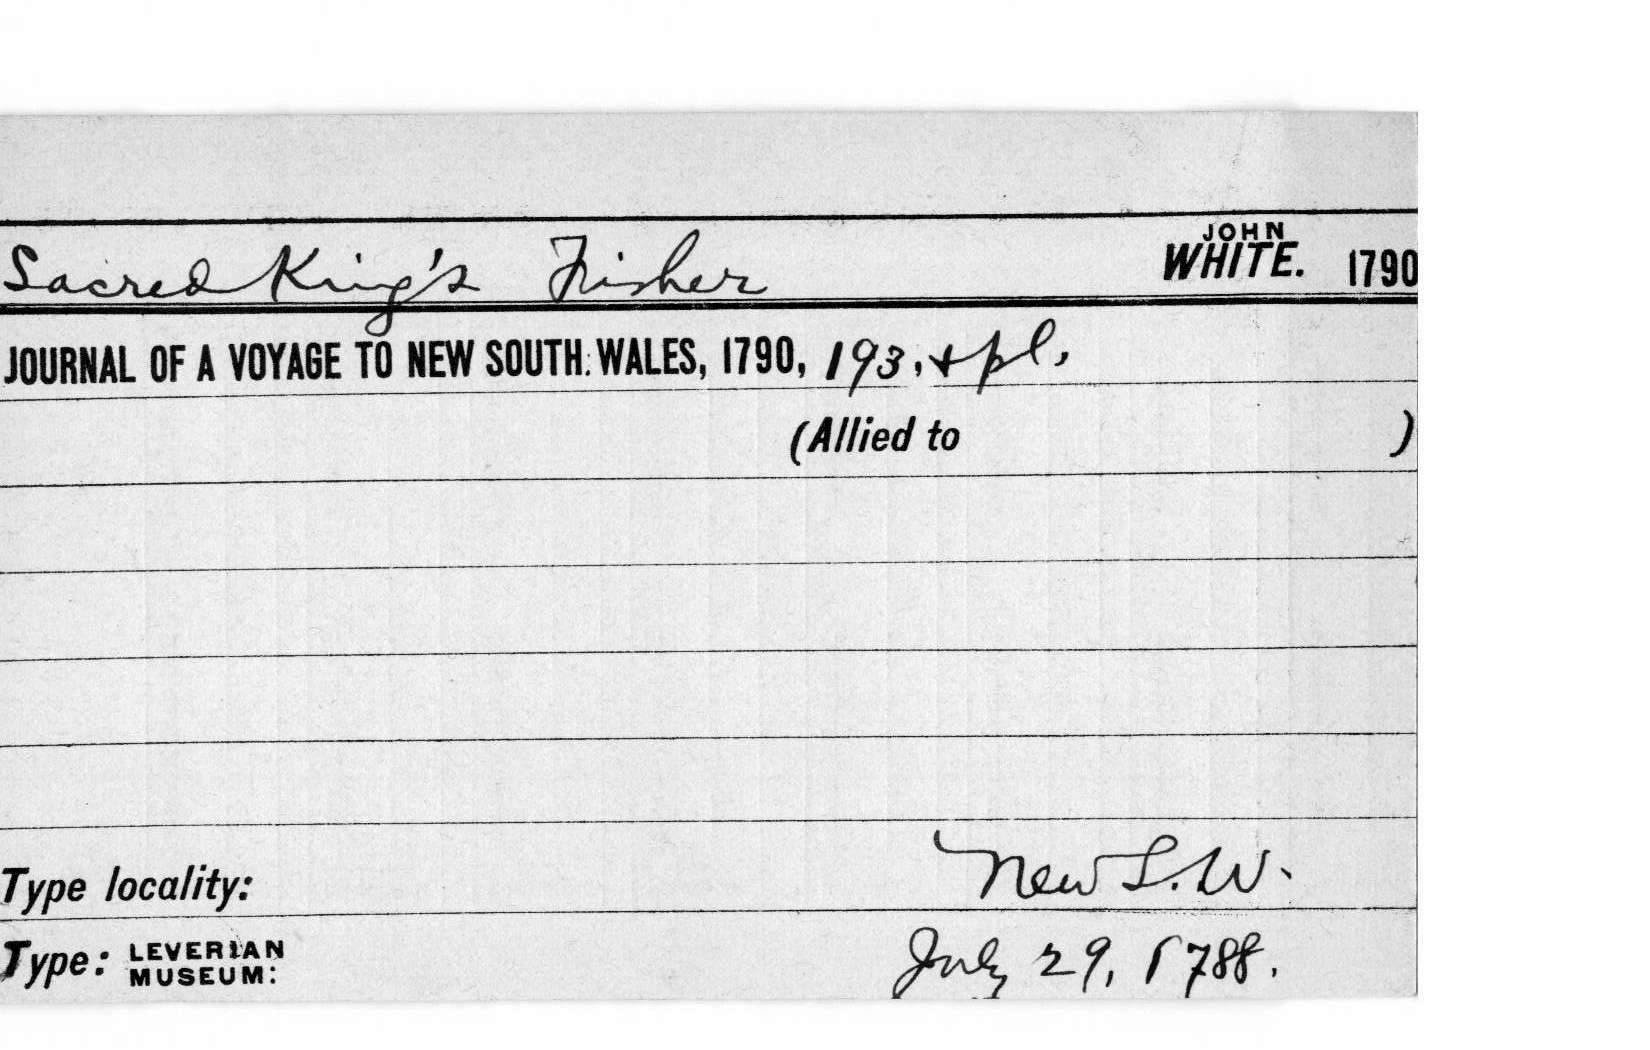 Sacred King's Fisher JOHN WHITE. 1790
JOURNAL OF A VOYAGE TO NEW SOUTH WALES, 1790, 193, + pl.
(Allied to )
Type locality: New S.W.
Type: LEVERIAN MUSEUM: July 29, 1788.